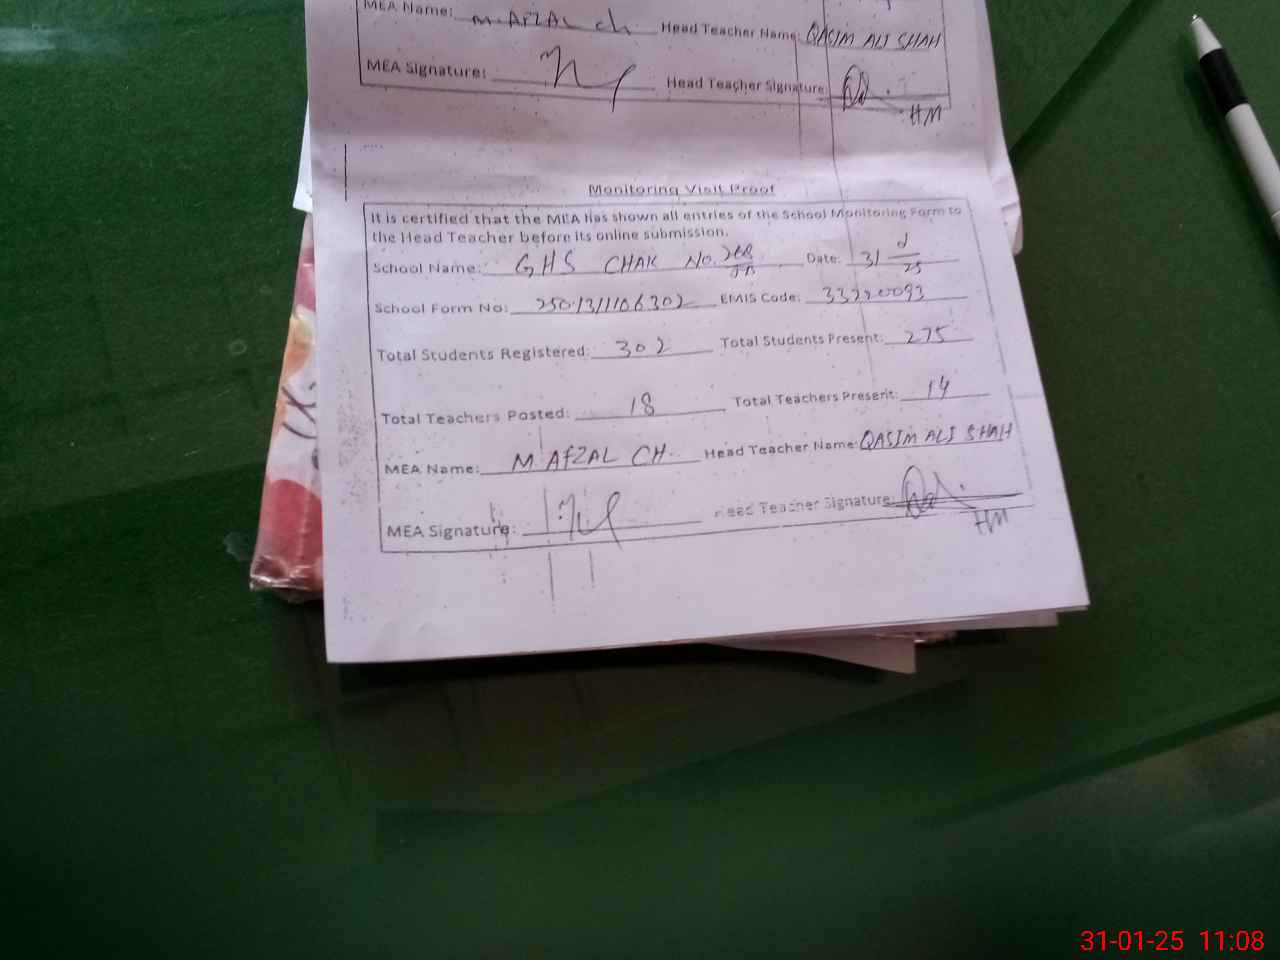 MEA Name: M. AFZAL ch Head Teacher Name: QASIM ALI SHAH
MEA Signature: Head Teacher Signature:
HM
Monitoring Visit Proof
It is certified that the MEA has shown all entries of the School Monitoring Form to
the Head Teacher before its online submission.
School Name: GHS CHAK No. 268 Date: 31 25
School Form No: EMIS Code:
Total Students Registered: 302 Total Students Present: 275
Total Teachers Posted: 18 Total Teachers Present: 14
MEA Name: M AFZAL CH. Head Teacher Name: QASIM ALI SHAH
MEA Signature: Head Teacher Signature:
HM
31-01-25 11:08